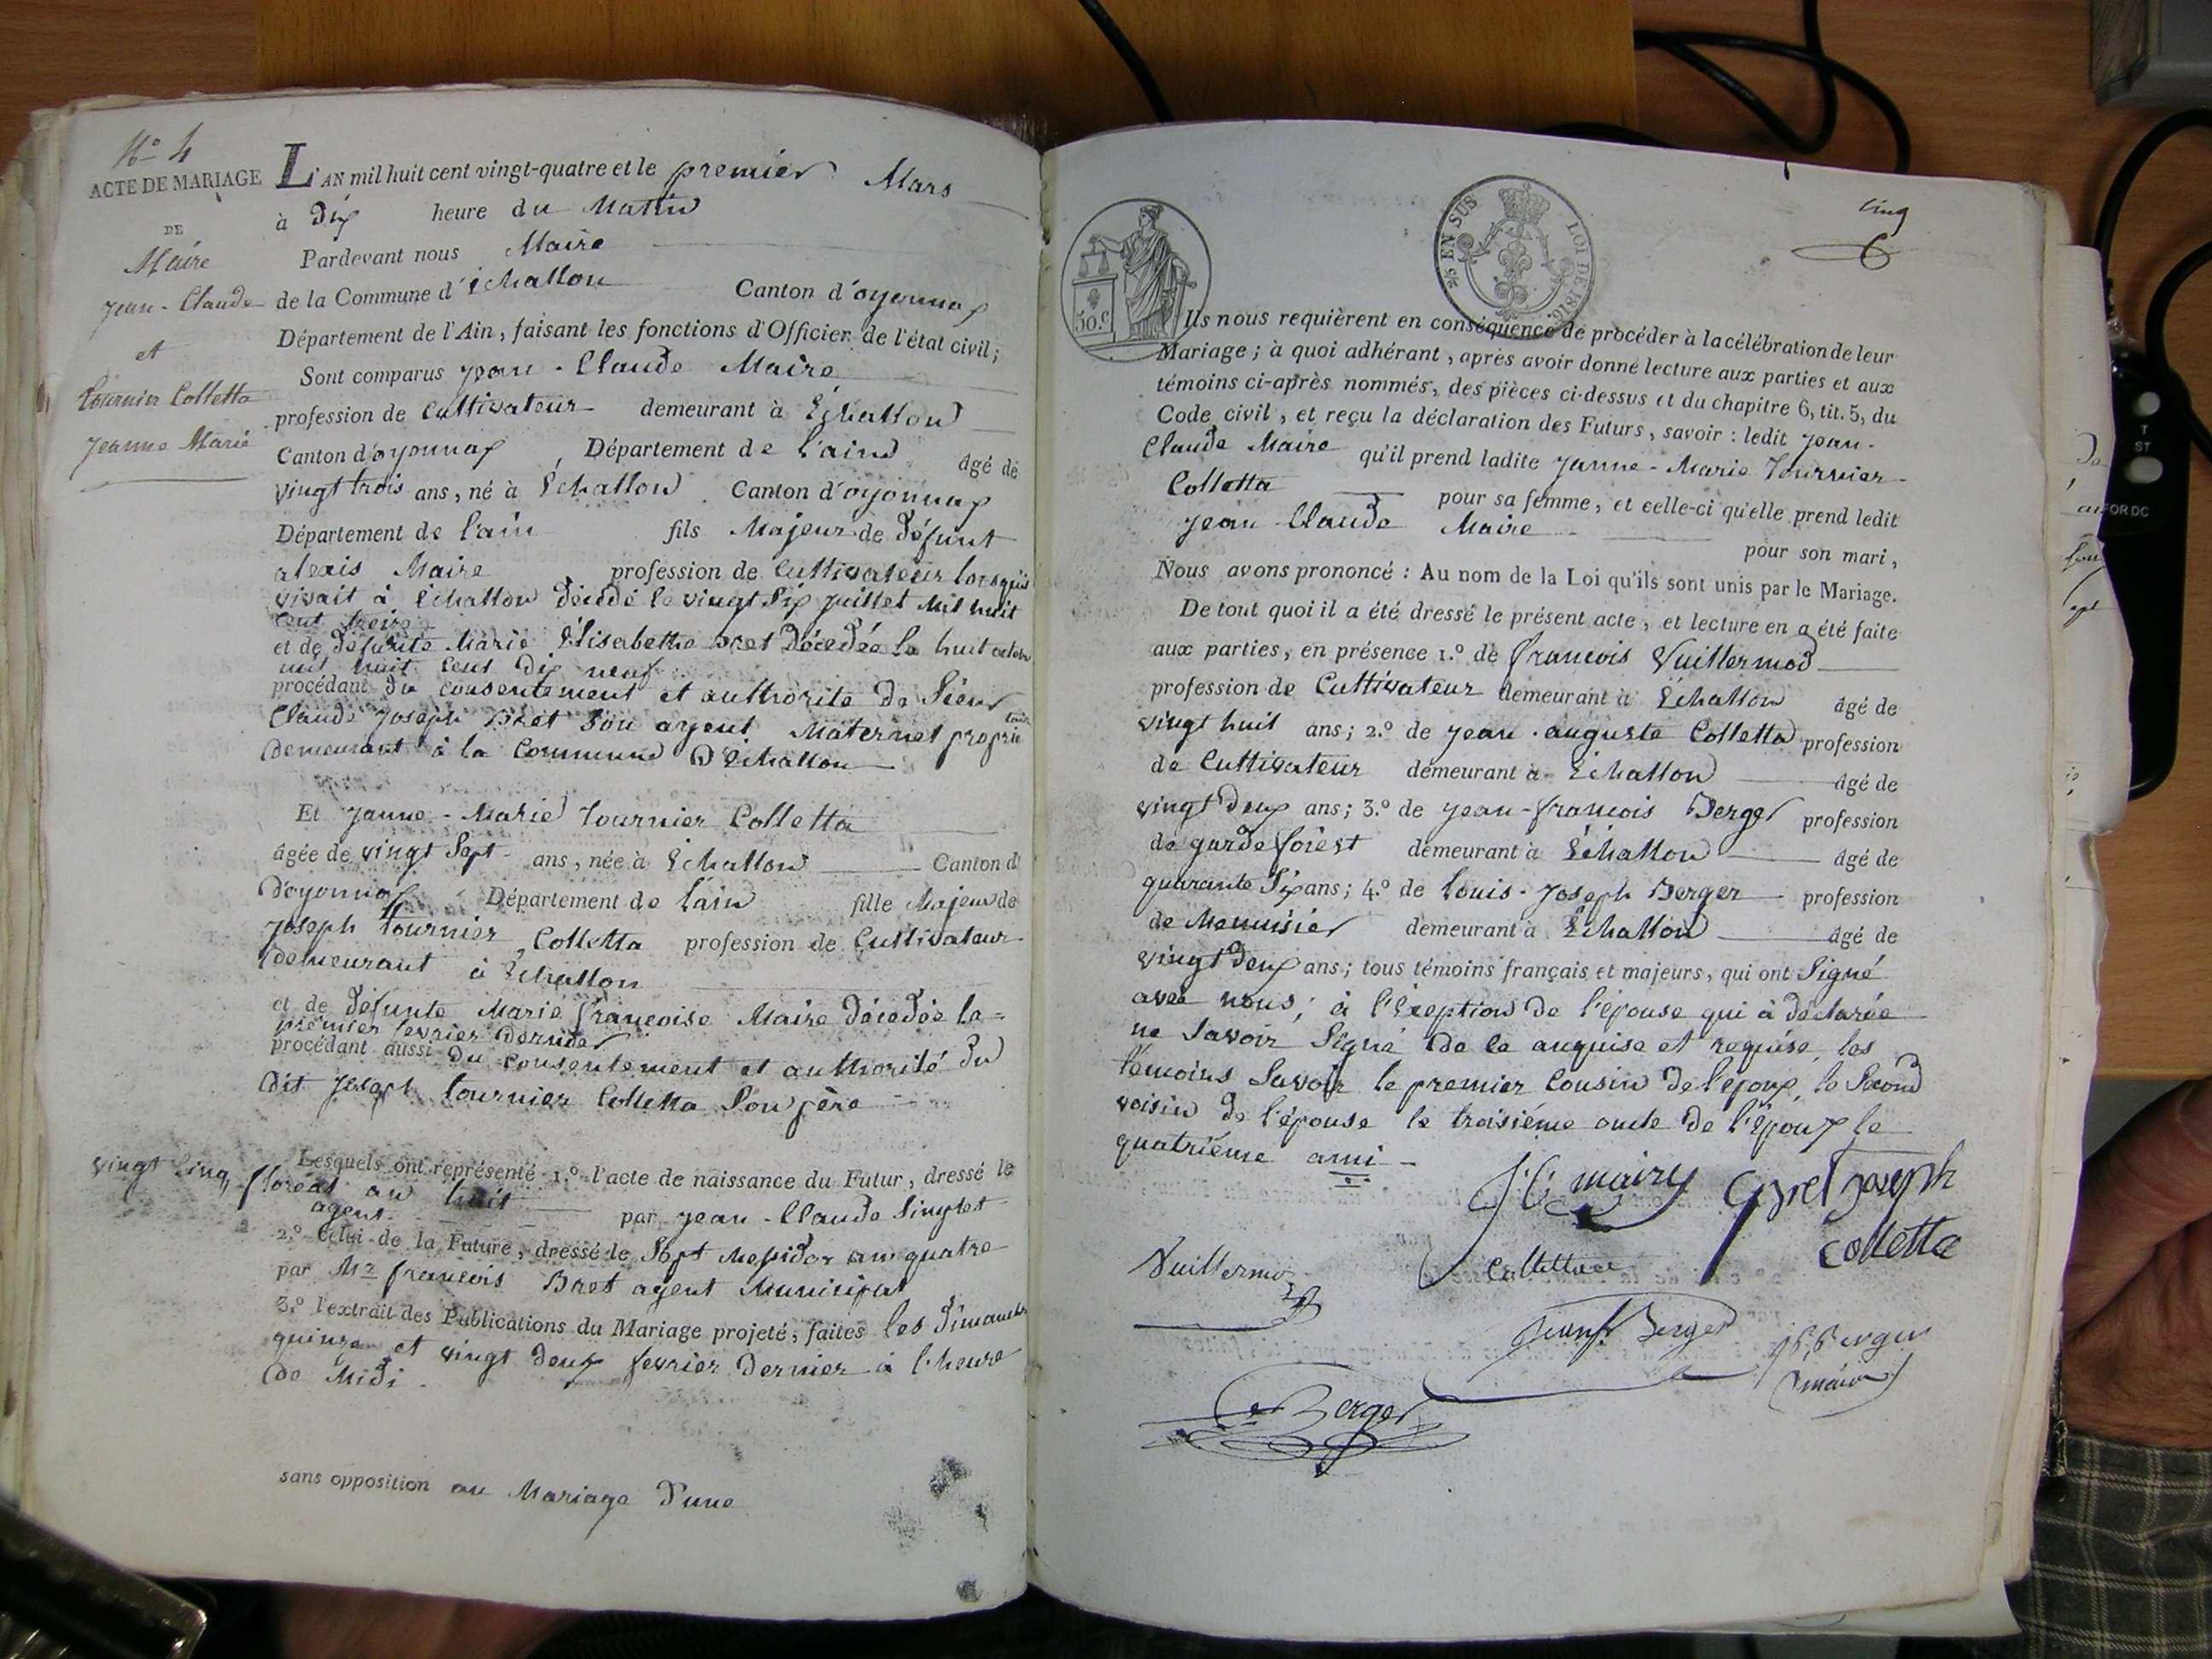 N.o 4
ACTE DE MARIAGE
DE
Maire
Jean-Claude
et
Tournier Colletta
Jeanne Marie
L'AN mil huit cent vingt-quatre et le premier Mars
à dix heure du Matin
Pardevant nous Maire
de la Commune d'Echallon Canton d'oyonnax
Département de l'Ain, faisant les fonctions d'Officier de l'état civil;
Sont comparus jean-Claude Maire
profession de Cultivateur demeurant à Echallon
Canton d'oyonnax, Département de l'ain âgé de
vingt trois ans, né à Echallon Canton d'oyonnax
Département de l'ain fils Majeur de défunt
alexis Maire profession de Cultivateur lorsquil
vivait à Echallon décédé le vingt Six juillet Mil huit
cent treize
et de défunte Marie Elisabethe Bret Décédée le huit octobre
mil huit Cent dix neuf
procédant du consentement et authorité de Sieur
Claude joseph Bret Son ayeul Maternel proprié
taire
demeurant à la Commune D'Echallon
Et janne-Marie Tournier Colletta
âgée de vingt Sept ans, née à Echallon Canton d
Doyonnax Département de l'ain fille Majeur de
joseph tournier Colletta profession de Cultivateur
demeurant à Echallon
et de défunte Marie françoise Maire décédée le
premier fevrier dernier
procédant aussi du consentement et authorité du
dit joseph tournier Colletta Son père
Lesquels ont représenté 1.º l'acte de naissance du Futur, dressé le
vingt Cinq floréal an huit par jean-Claude Singlet
agent
2.º Celui de la Future, dressé le Sept Messidor an quatre
par Mr françois Bret agent Municipal
3.º l'extrait des Publications du Mariage projeté, faites les dimanches
quinze et vingt deux fevrier dernier à l'heure
de Midi.
sans opposition au Mariage d'une
cinq
50.c
EN SUS
LOI DE 1816.
Ils nous requièrent en conséquence de procéder à la célébration de leur
Mariage; à quoi adhérant, après avoir donné lecture aux parties et aux
témoins ci-après nommés, des pièces ci-dessus et du chapitre 6, tit. 5, du
Code civil, et reçu la déclaration des Futurs, savoir: ledit jean-
Claude Maire qu'il prend ladite janne-Marie Tournier-
Colletta pour sa femme, et celle-ci qu'elle prend ledit
jean Claude Maire pour son mari,
Nous avons prononcé: Au nom de la Loi qu'ils sont unis par le Mariage.
De tout quoi il a été dressé le présent acte, et lecture en a été faite
aux parties, en présence 1.º de francois Vuillermod
profession de Cultivateur demeurant à Echallon âgé de
vingt huit ans; 2.º de jean-auguste Colletta profession
de Cultivateur demeurant à Echallon âgé de
vingt deux ans; 3.º de jean-francois Berger profession
de garde forest demeurant à Echallon âgé de
quarante Six ans; 4.º de louis-joseph Berger profession
de Menuisier demeurant à Echallon âgé de
vingt deux ans; tous témoins français et majeurs, qui ont Signé
avec nous, à l'exeption de l'épouse qui à déclarée
ne Savoir Signé de ce anquise et requise, les
témoins Savoir le premier Cousin de l'époux, le Second
voisin de l'épouse le troisiéme oncle de l'époux le
quatriéme ami
J C mairy Bret Joseph
Colletta
Vuillermoz
Jeanf Berger
Berger
maire
Berger